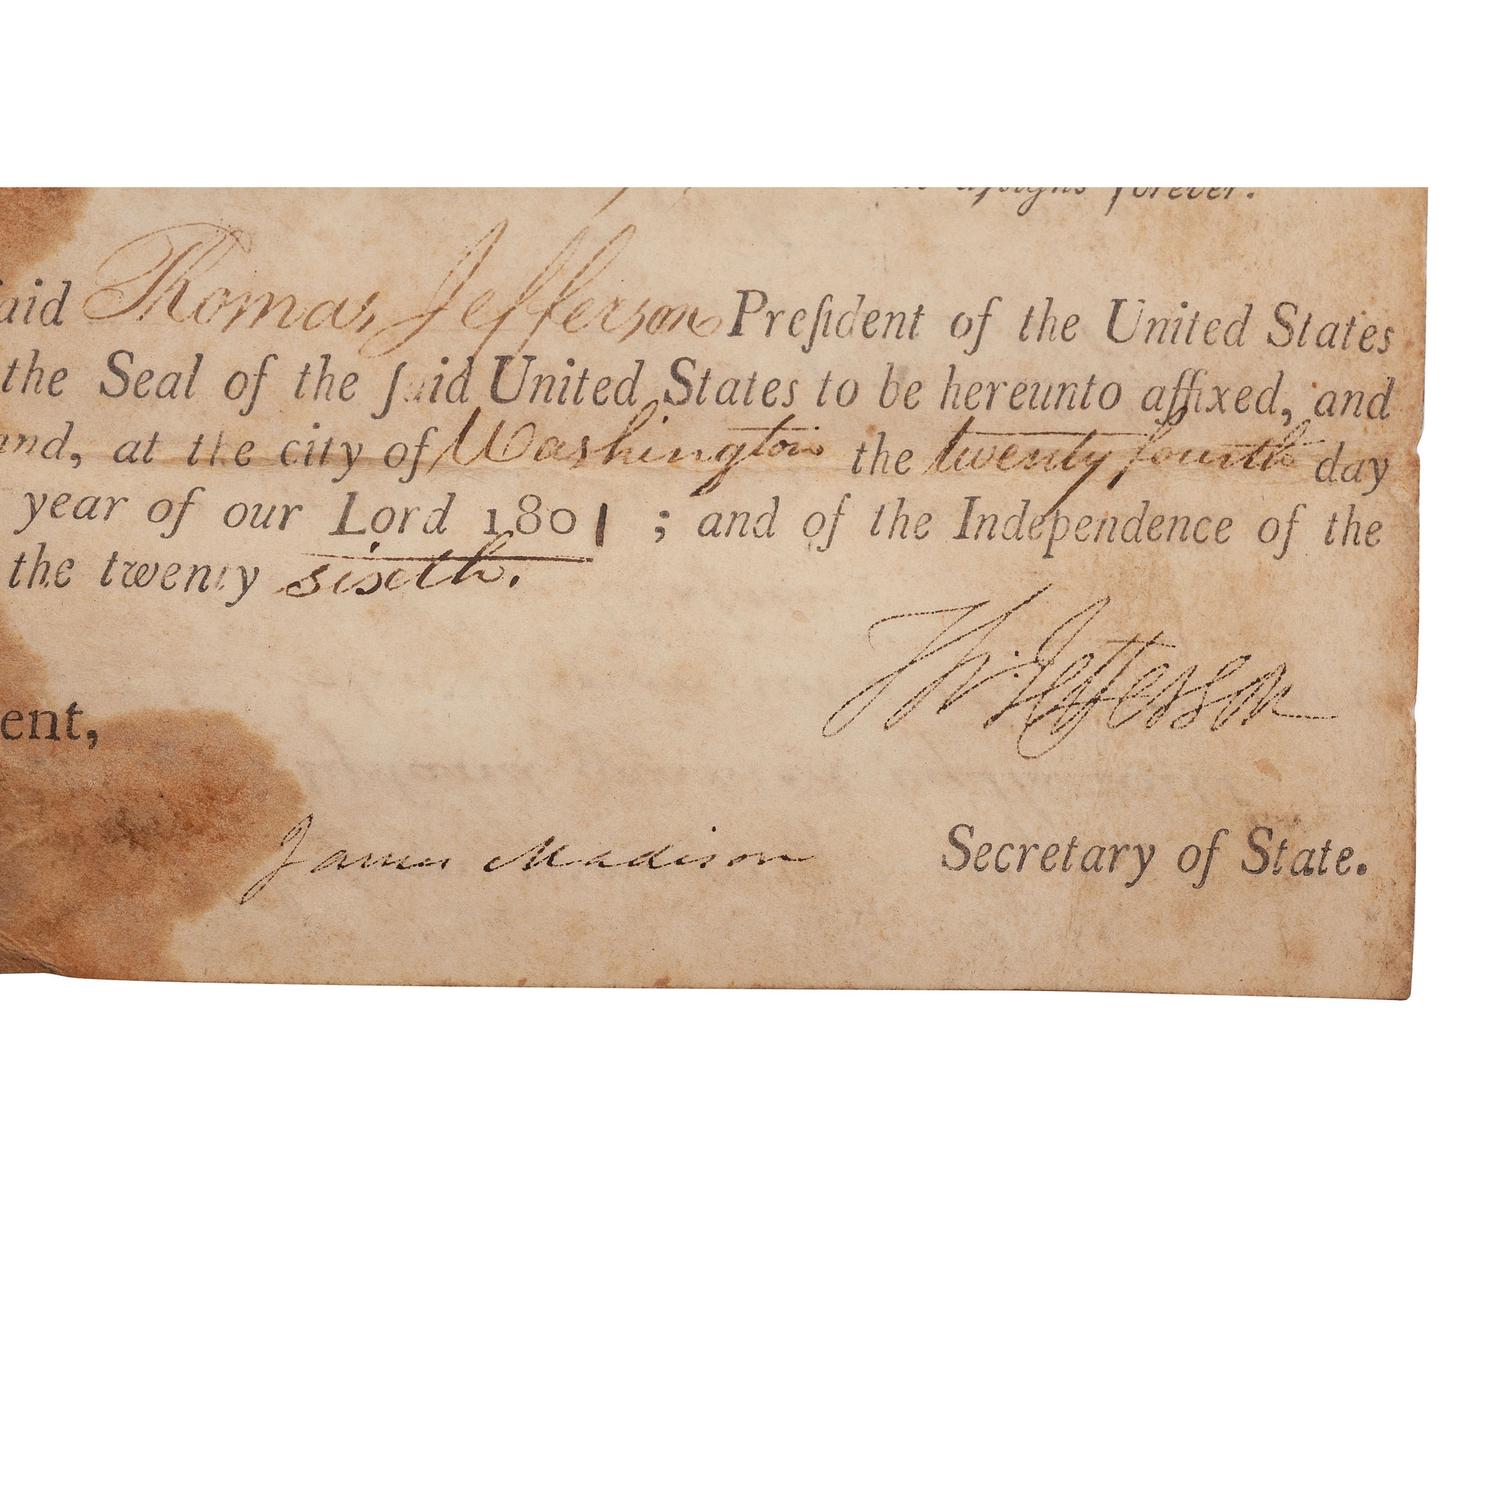 aſsigns forever.
ſaid Thomas Jefferson Preſident of the United States
the Seal of the ſaid United States to be hereunto affixed, and
and, at the city of Washington the twenty fourth day
year of our Lord 1801 ; and of the Independence of the
the twenty sixth.
Th: Jefferson
ent,
James Madison Secretary of State.